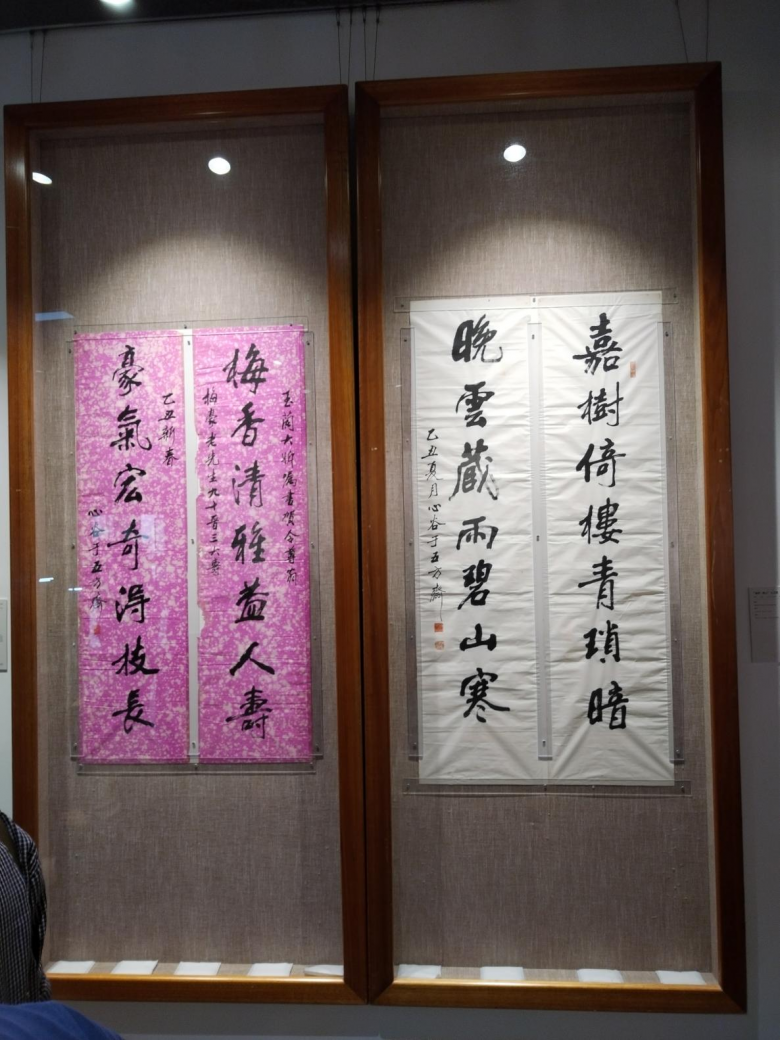 嘉樹倚樓青瑣暗
晚雲藏雨碧山寒
乙丑夏月心谷于五方齋
玉蘭大姊屬書賀令尊翁
梅長老先生九十晉三大
梅香清雅益人壽
乙丑新春
豪氣宏奇得枝長
心谷于五方齋